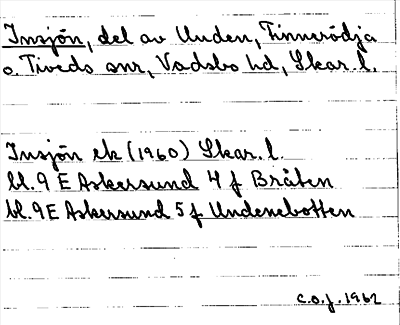 Insjön, del av Unden, Finnerödja
o. Tiveds snr, Vadsbo hd, Skar. l.
Insjön ek (1960) Skar. l.
bl. 9 E Askersund 4 f Bråten
bl. 9E Askersund 5 f Undenebotten
C.O.J. 1962